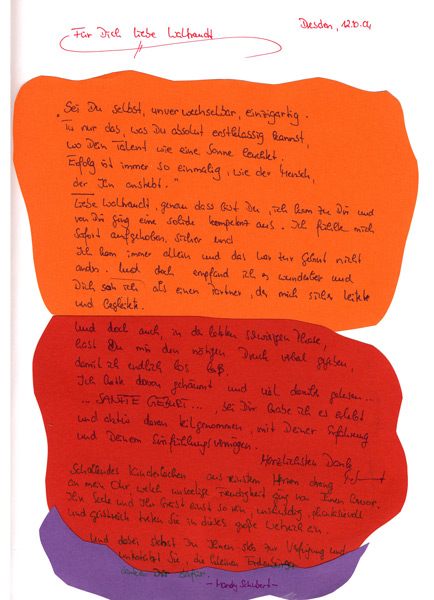 Für Dich liebe Waltraudt
Dresden, 12.10.04
"Sei Du selbst, unverwechselbar, einzigartig.
Tu nur das, was Du absolut erstklassig kannst,
wo Dein Talent wie eine Sonne leuchtet.
Erfolg ist immer so einmalig, wie der Mensch,
der ihn anstrebt."
Liebe Waltraudt, genau das bist Du, ich kam zu Dir und
von Dir ging eine solide Kompetenz aus. Ich fühlte mich
sofort aufgehoben, sicher und
Ich kam immer allein und das war zur Geburt nicht
anders. Und doch empfand ich es wunderbar und
Dich sah ich als einen Partner, der mich sicher leitete
und begleitete.
Und doch auch, in der letzten schwierigen Phase,
hast Du mir den nötigen Druck verbal gegeben,
damit ich endlich los ließ.
Ich hatte davon geträumt und viel darüber gelesen...
... SANFTE GEBURT ..., bei Dir habe ich es erlebt
und aktiv daran teilgenommen, mit Deiner Erfahrung
und Deinem Einfühlungsvermögen.
Herzlichsten Dank
Schallendes Kinderlachen, aus reinstem Herzen drang
an mein Ohr welch unselige Freudigkeit ging von Ihnen
Ihr Seele und Ihr Geist einst so rein, unschuldig, phantasievoll
und geistreich treten Sie in dieses große Weltreich ein.
Und dabei stehst Du Ihnen stets zur Verfügung und
unterstützt Sie, die kleinen
- Mandy Schubert -